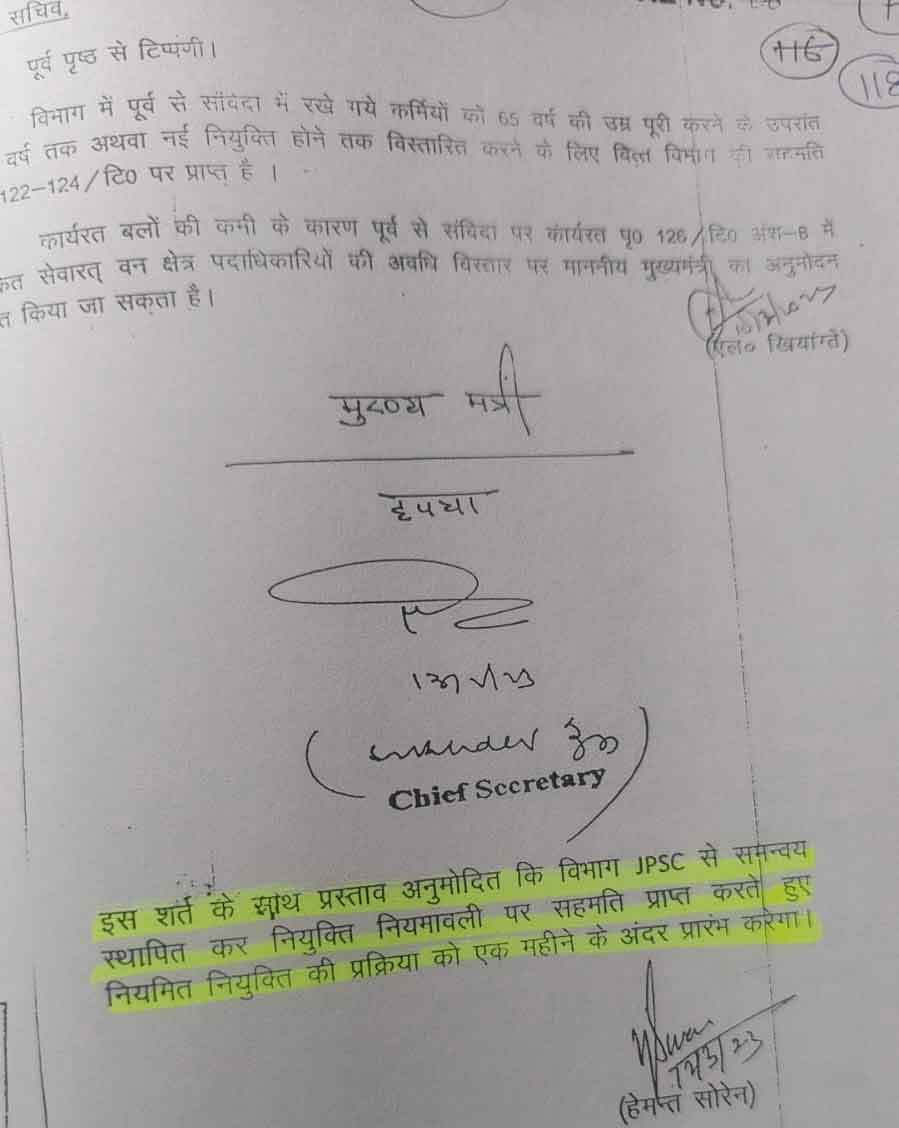 सचिव,
116
118
पूर्व पृष्ठ से टिप्पणी।
विभाग में पूर्व से संविदा में रखे गये कर्मियों को 65 वर्ष की उम्र पूरी करने के उपरांत
वर्ष तक अथवा नई नियुक्ति होने तक विस्तारित करने के लिए वित्त विभाग की सहमति
122–124/टि0 पर प्राप्त है ।
कार्यरत बलों की कमी के कारण पूर्व से संविदा पर कार्यरत पृ0 126/टि0 अंश–B में
सेवारत् वन क्षेत्र पदाधिकारियों की अवधि विस्तार पर माननीय मुख्यमंत्री का अनुमोदन
किया जा सकता है।
(एल० खियांग्ते)
मुख्य मंत्री
Chief Secretary
इस शर्त के साथ प्रस्ताव अनुमोदित कि विभाग JPSC से समन्वय
स्थापित कर नियुक्ति नियमावली पर सहमति प्राप्त करते हुए
नियमित नियुक्ति की प्रक्रिया को एक महीने के अंदर प्रारंभ करेगा।
(हेमन्त सोरेन)